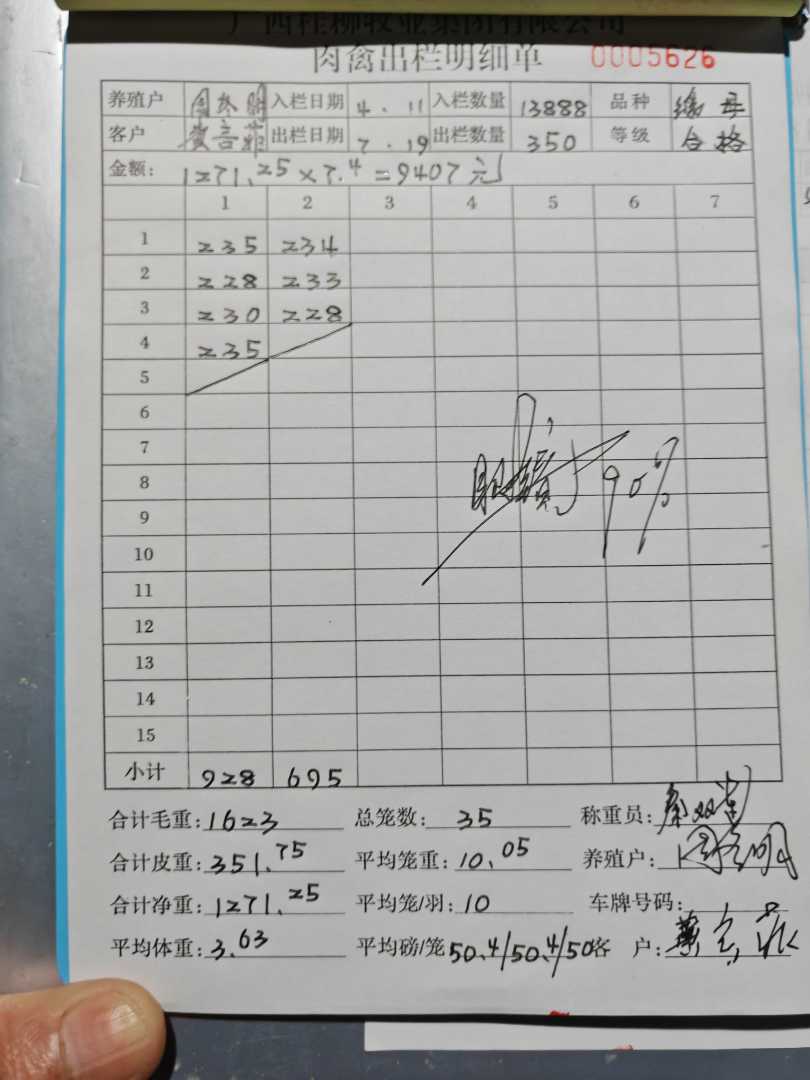 广西桂柳牧业集团有限公司
肉禽出栏明细单 0005626
养殖户 入栏日期 4.11 入栏数量 13888 品种
客户 出栏日期 7.19 出栏数量 350 等级 合格
金额: 1271.25×7.4=9407元
1 2 3 4 5 6 7
1 235 234
2 228 233
3 230 228
4 235
5
6
7
8 90%
9
10
11
12
13
14
15
小计 928 695
合计毛重: 1623 总笼数: 35 称重员:
合计皮重: 351.75 平均笼重: 10.05 养殖户:
合计净重: 1271.25 平均笼/羽: 10 车牌号码:
平均体重: 3.63 平均磅/笼 50.4/50.4/50 客 户: